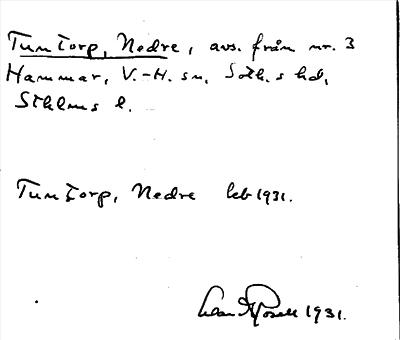 Tumtorp, Nedre, avs. från nr. 3
Hammar, V.-H. sn, Soth.s hd,
Sthlms l.
Tumtorp, Nedre leb 1931.
1931.